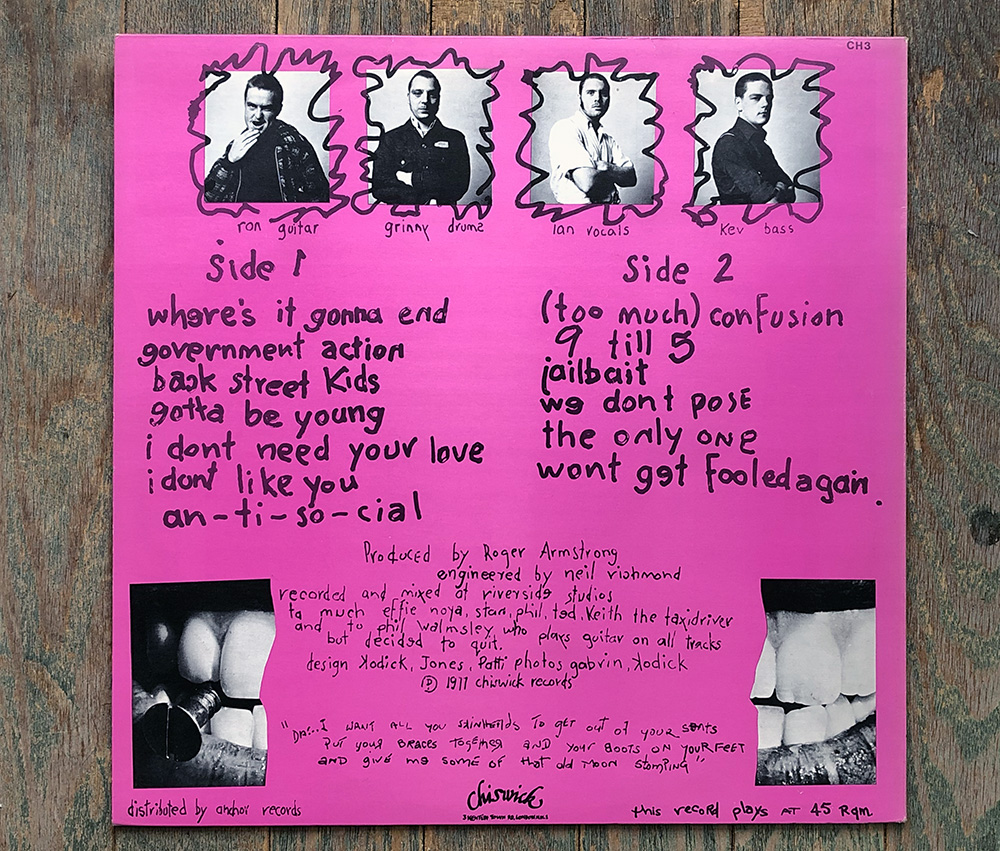 CH3
ron guitar
grinny drums
Ian vocals
Kev bass
Side 1
where's it gonna end
government action
back street Kids
gotta be young
i dont need your love
i dont like you
an-ti-so-cial
Side 2
(too much) confusion
9 till 5
jailbait
we dont pose
the only one
wont get fooled again.
Produced by Roger Armstrong
engineered by neil richmond
recorded and mixed at riverside studios
ta much effie noya, stan, phil, ted, Keith the taxidriver
and to phil walmsley who plays guitar on all tracks
but decided to quit.
design Kodick, Jones, Patti photos gabrin, Kodick
℗ 1977 chiswick records
I WANT ALL YOU SKINHEADS TO GET OUT of YOUR seats
PUT YOUR BRACES TOGETHER AND YOUR BOOTS ON YOUR FEET
AND GIVE ME SOME OF that old MOON Stomping"
distributed by anchor records
Chiswick
this record plays AT 45 Rpm